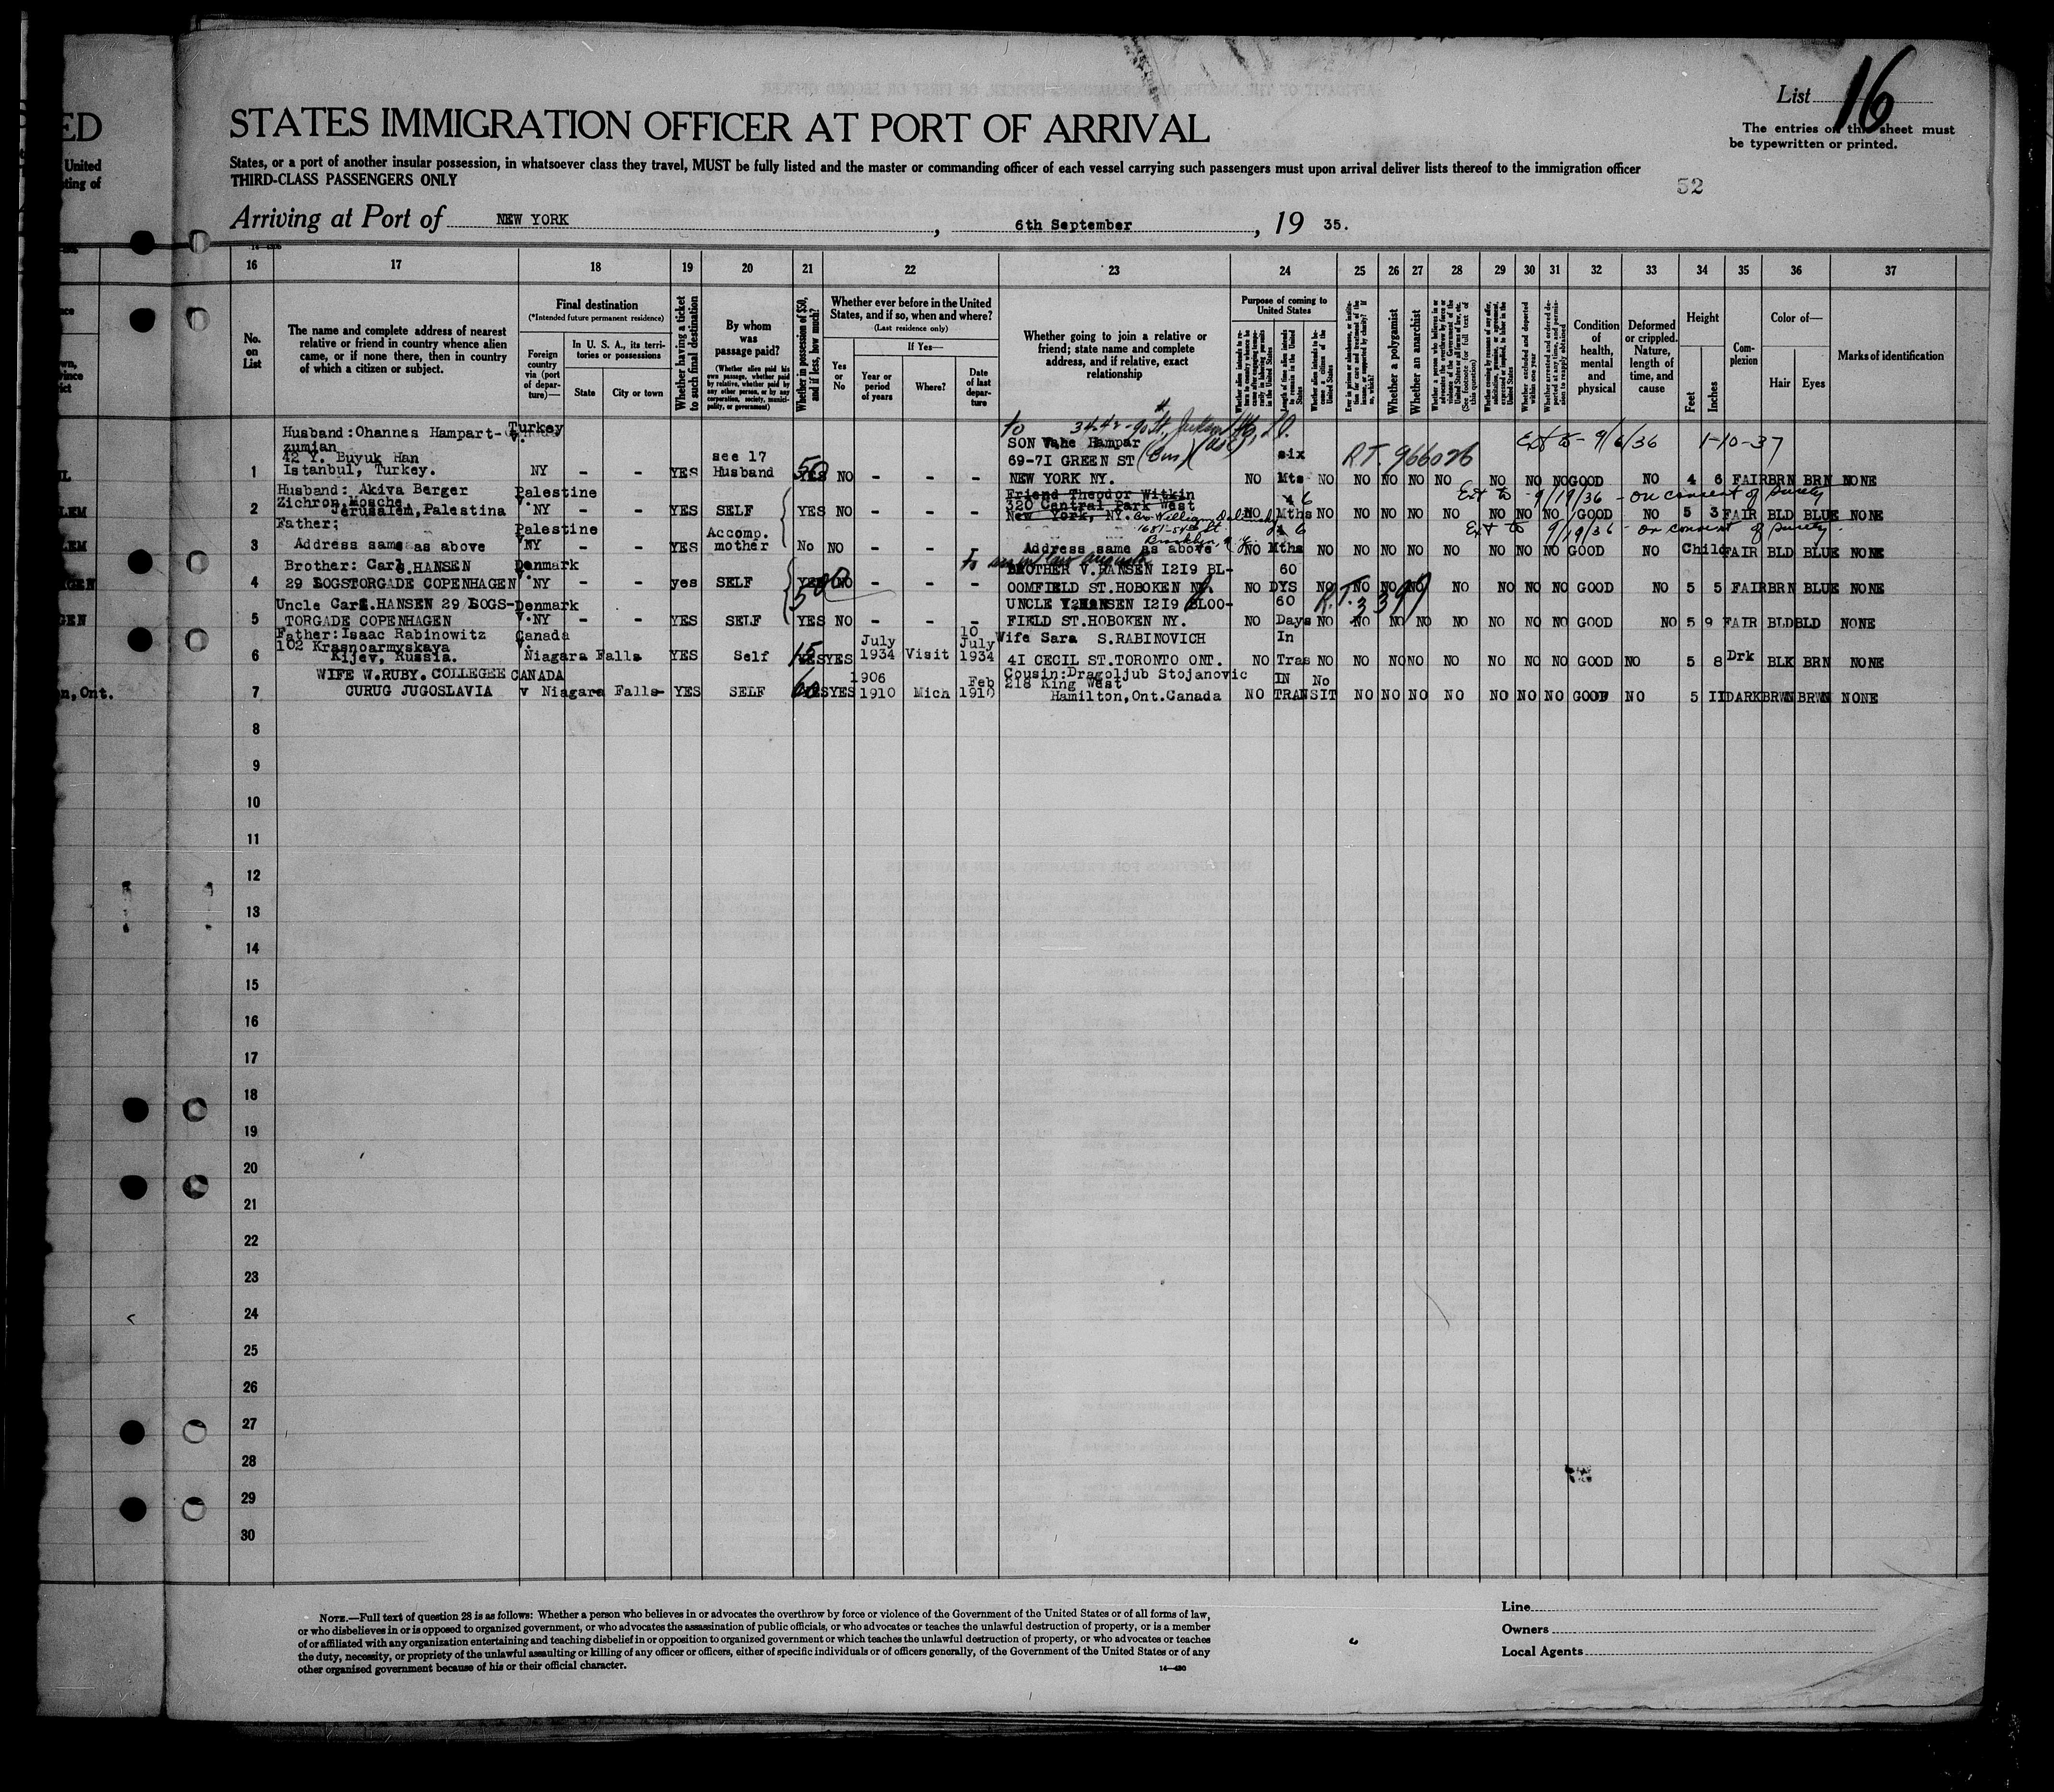 ED
United
ting of
List 16
STATES IMMIGRATION OFFICER AT PORT OF ARRIVAL
The entries on this sheet must
be typewritten or printed.
States, or a port of another insular possession, in whatsoever class they travel, MUST be fully listed and the master or commanding officer of each vessel carrying such passengers must upon arrival deliver lists thereof to the immigration officer
THIRD-CLASS PASSENGERS ONLY
52
Arriving at Port of NEW YORK, 6th September, 19 35.
16 17 18 19 20 21 22 23 24 25 26 27 28 29 30 31 32 33 34 35 36 37
No. on List
The name and complete address of nearest relative or friend in country whence alien came, or if none there, then in country of which a citizen or subject.
Final destination
(*Intended future permanent residence)
Foreign country via (port of departure)—
In U. S. A., its territories or possessions
State
City or town
Whether having a ticket to such final destination
By whom was passage paid?
(Whether alien paid his own passage, whether paid by relative, whether paid by any other person, or by any corporation, society, municipality, or government)
Whether in possession of $50, and if less, how much?
Whether ever before in the United States, and if so, when and where?
(Last residence only)
Yes or No
If Yes—
Year or period of years
Where?
Date of last departure
Whether going to join a relative or friend; state name and complete address, and if relative, exact relationship
Purpose of coming to United States
Whether a polygamist
Whether an anarchist
Condition of health, mental and physical
Deformed or crippled. Nature, length of time, and cause
Height
Feet
Inches
Complexion
Color of—
Hair
Eyes
Marks of identification
Husband: Ohannes Hampart- Turkey to 34-42-90 St, Jackson
zumian V. SON Vahe Hampar Ext to - 9/6/36 1-10-37
42 Y. Buyuk Han see 17 69-71 GREEN ST six R.T. 966026
1 Istanbul, Turkey. NY - - YES Husband 50 YES NO - - - NEW YORK NY. NO Mts NO NO NO NO NO NO NO NO GOOD NO 4 6 FAIR BRN BRN NONE
Husband: Akiva Berger Palestine Friend Theodor Witkin Ext to 9/19/36 - on consent of surety
Zichron Mosche V. 320 Central Park West 6
2 Jerusalem, Palestina NY - - YES SELF YES NO - - - New York, NY. William NO Mths NO NO NO NO NO NO NO NO GOOD NO 5 3 FAIR BLD BLUE NONE
Father; Palestine Accomp. Brooklyn, N.Y. 6 Ext to 9/19/36 - on consent of surety
3 Address same as above V. NY - - YES mother No NO - - Address same as above NO Mths NO NO NO NO NO NO NO NO GOOD NO Child FAIR BLD BLUE NONE
Brother: Carl HANSEN Denmark to BROTHER V. HANSEN 1219 BL- 60
4 29 BOGSTORGADE COPENHAGEN V. NY - - yes SELF YES NO - - - OOMFIELD ST. HOBOKEN NY. NO DYS NO NO NO NO NO NO NO NO GOOD NO 5 5 FAIR BRN BLUE NONE
Uncle Carl. HANSEN 29 BOGS- Denmark UNCLE HANSEN 1219 BLOO- 60 R.T. 3397
5 TORGADE COPENHAGEN V. NY - - YES SELF YES NO - - - FIELD ST. HOBOKEN NY. NO Days NO NO NO NO NO NO NO NO GOOD NO 5 9 FAIR BLD BLD NONE
Father: Isaac Rabinowitz Canada July 10 Wife Sara S. RABINOVICH In
102 Krasnoarmyskaya V.
6 Kijev, Russia. Niagara Falls YES Self 15 YES YES 1934 Visit July 1934 41 CECIL ST. TORONTO ONT. NO Tras NO NO NO NO NO NO NO NO GOOD NO 5 8 Drk BLK BRN NONE
WIFE W. RUBY. COLLEGEE CANADA 1906 Feb Cousin: Dragoljub Stojanovic IN No
218 King West
7 CURUG JUGOSLAVIA v Niagara Falls- YES SELF 60 YES YES 1910 Mich 1910 Hamilton, Ont. Canada NO TRANSIT NO NO NO NO NO NO NO GOOD NO 5 11 DARK BRWN BRWN NONE
n, Ont.
8
9
10
11
12
13
14
15
16
17
18
19
20
21
22
23
24
25
26
27
28
29
30
NOTE.—Full text of question 28 is as follows: Whether a person who believes in or advocates the overthrow by force or violence of the Government of the United States or of all forms of law,
or who disbelieves in or is opposed to organized government, or who advocates the assassination of public officials, or who advocates or teaches the unlawful destruction of property, or is a member
of or affiliated with any organization entertaining and teaching disbelief in or opposition to organized government or which teaches the unlawful destruction of property, or who advocates or teaches
the duty, necessity, or propriety of the unlawful assaulting or killing of any officer or officers, either of specific individuals or of officers generally, of the Government of the United States or of any
other organized government because of his or their official character.
14—430
Line
Owners
Local Agents